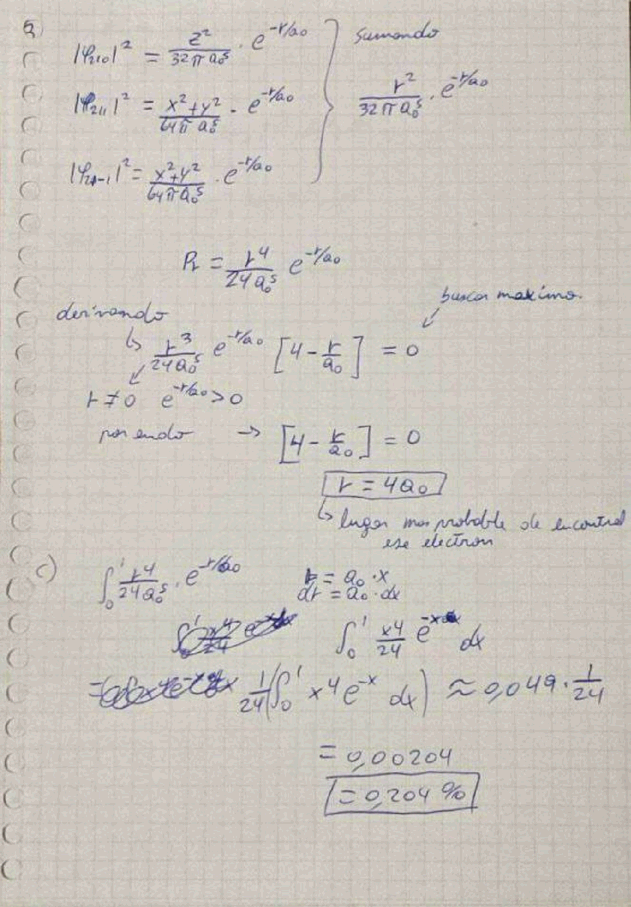 a)
|φ₂₁₀|² = z²/(32πa₀⁵) · e^(-r/a₀)
sumando
|φ₂₁₁|² = (x²+y²)/(64πa₀⁵) · e^(-r/a₀)
r²/(32πa₀⁵) · e^(-r/a₀)
|φ₂₁₋₁|² = (x²+y²)/(64πa₀⁵) · e^(-r/a₀)
Pr = r⁴/(24a₀⁵) e^(-r/a₀)
buscar maximo.
derivando
↳ r³/(24a₀⁵) e^(-r/a₀) [4 - r/a₀] = 0
r ≠ 0 e^(-r/a₀) > 0
por endo → [4 - r/a₀] = 0
r = 4a₀
↳ lugar mas probable de encontrar
ese electron
c) ∫₀¹ r⁴/(24a₀⁵) · e^(-r/a₀) r = a₀·x
dr = a₀·dx
∫₀¹ x⁴/24 e^(-x) dx
= 1/24 (∫₀¹ x⁴e^(-x) dx) ≈ 0,049 · 1/24
= 0,00204
= 0,204 %